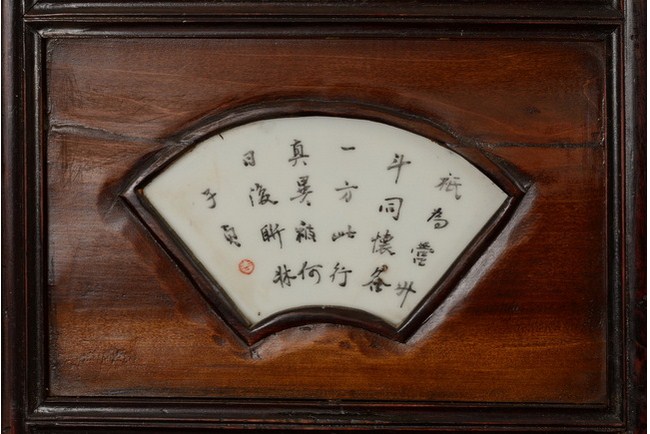 祇為營升
斗同懷各
一方此行
真異何
日復聯牀
子貞